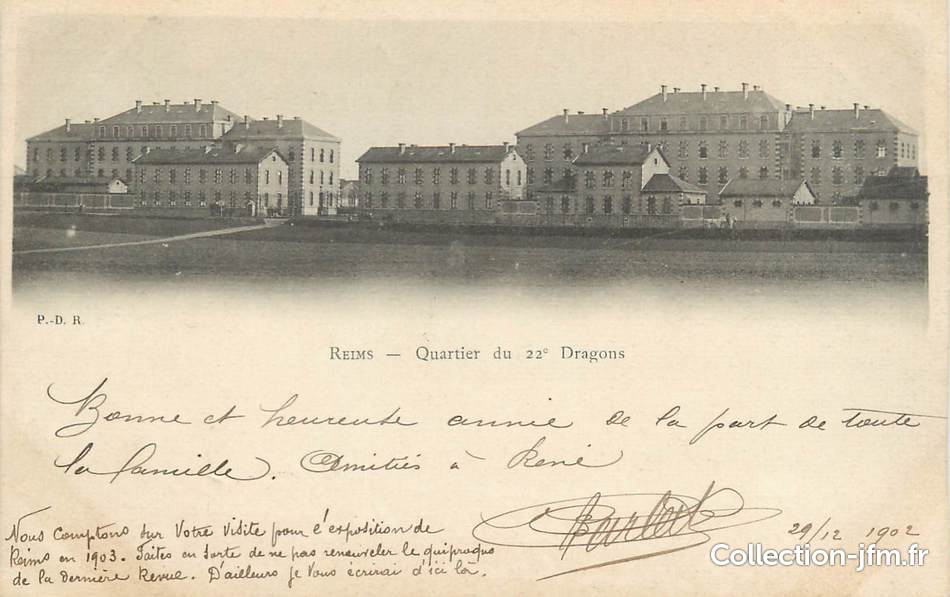 P.-D. R.
REIMS — Quartier du 22e Dragons
Bonne et heureuse année de la part de toute
la famille. Amitiés à René
Nous comptons sur votre visite pour l'exposition de
Reims en 1903. Faites en sorte de ne pas renouveler le quiproquo
de la dernière Revue. D'ailleurs je vous écrirai d'ici là.
29/12 1902
Collection-jfm.fr